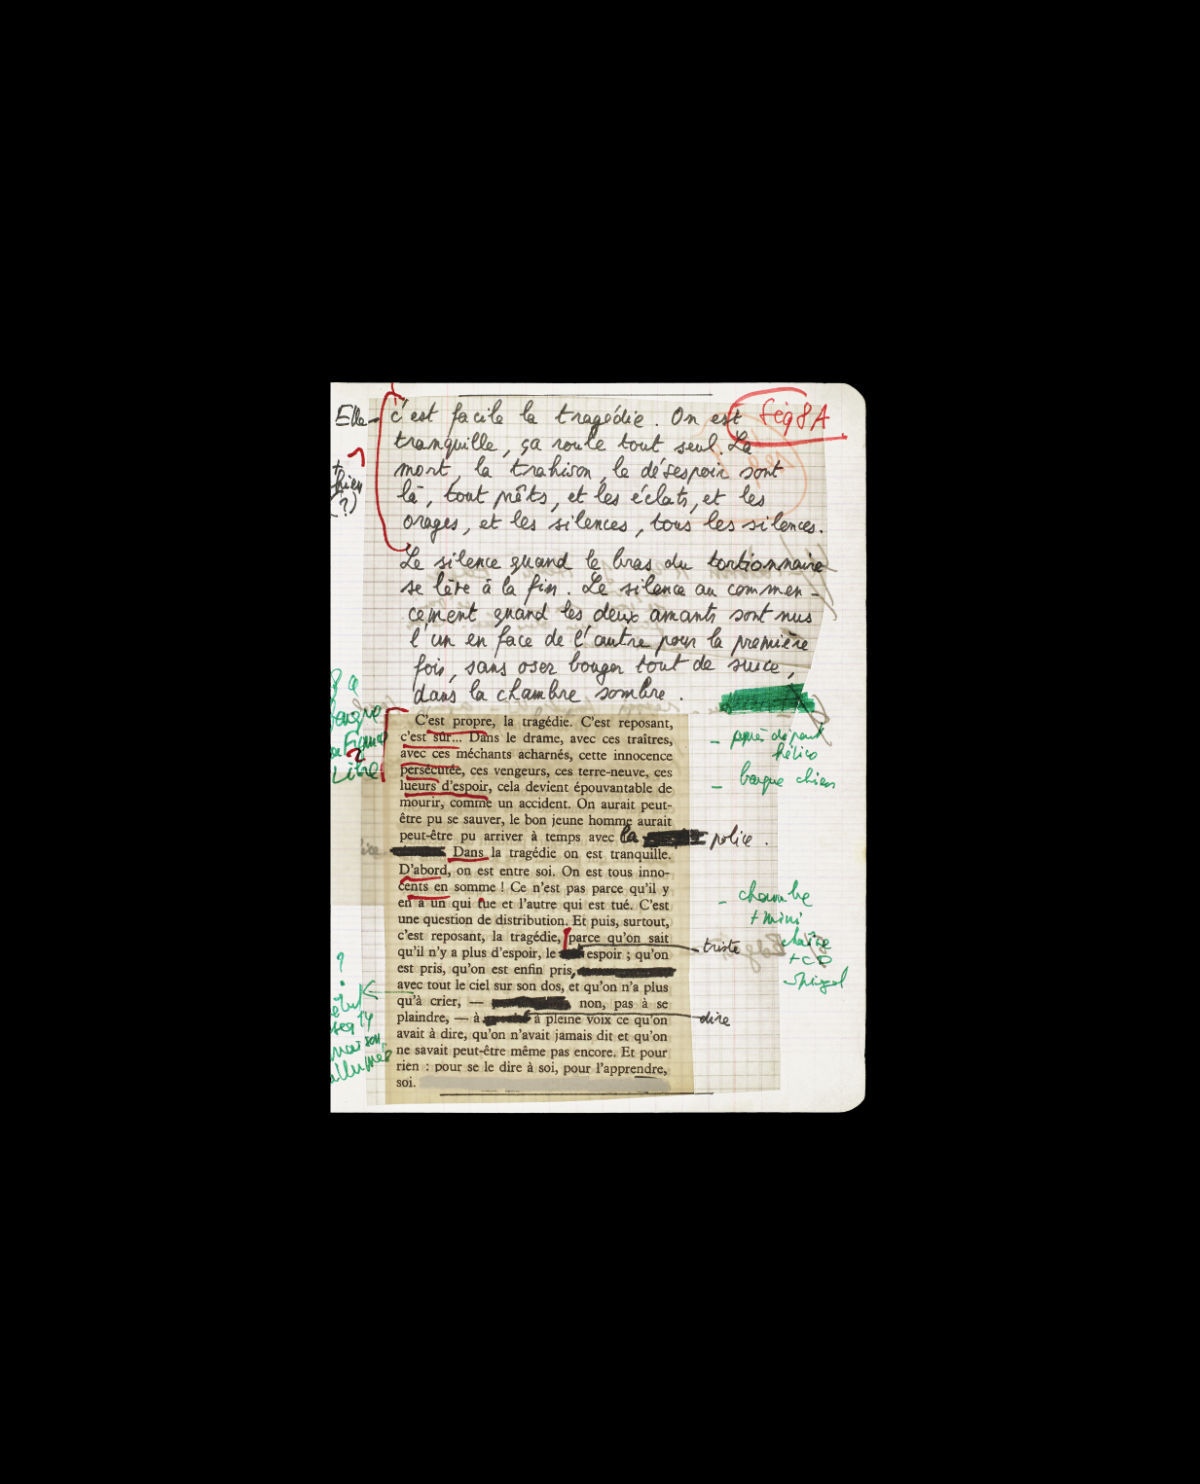 Elle - c'est facile la tragédie. On est
Séq 8A
tranquille, ça roule tout seul. La
mort, la trahison, le désespoir sont
là, tout prêts, et les éclats, et les
orages, et les silences, tous les silences.
+
chien
(?)
Le silence quand le bras du tortionnaire
se lève à la fin. Le silence au commen-
cement quand les deux amants sont nus
l'un en face de l'autre pour la première
fois, sans oser bouger tout de suite,
dans la chambre sombre.
C'est propre, la tragédie. C'est reposant,
c'est sûr... Dans le drame, avec ces traîtres,
avec ces méchants acharnés, cette innocence
persécutée, ces vengeurs, ces terre-neuve, ces
lueurs d'espoir, cela devient épouvantable de
mourir, comme un accident. On aurait peut-
être pu se sauver, le bon jeune homme aurait
peut-être pu arriver à temps avec la police.
Dans la tragédie on est tranquille.
D'abord, on est entre soi. On est tous inno-
cents en somme ! Ce n'est pas parce qu'il y
en a un qui tue et l'autre qui est tué. C'est
une question de distribution. Et puis, surtout,
c'est reposant, la tragédie, parce qu'on sait
qu'il n'y a plus d'espoir, le espoir ; qu'on
est pris, qu'on est enfin pris,
avec tout le ciel sur son dos, et qu'on n'a plus
qu'à crier, — non, pas à se
plaindre, — à à pleine voix ce qu'on
avait à dire, qu'on n'avait jamais dit et qu'on
ne savait peut-être même pas encore. Et pour
rien : pour se le dire à soi, pour l'apprendre,
soi.
Libre
- après départ
hélico
- barque chien
- chambre
+ mini
+ CD
triste
dire
?
début
seq 14
maison
allumée